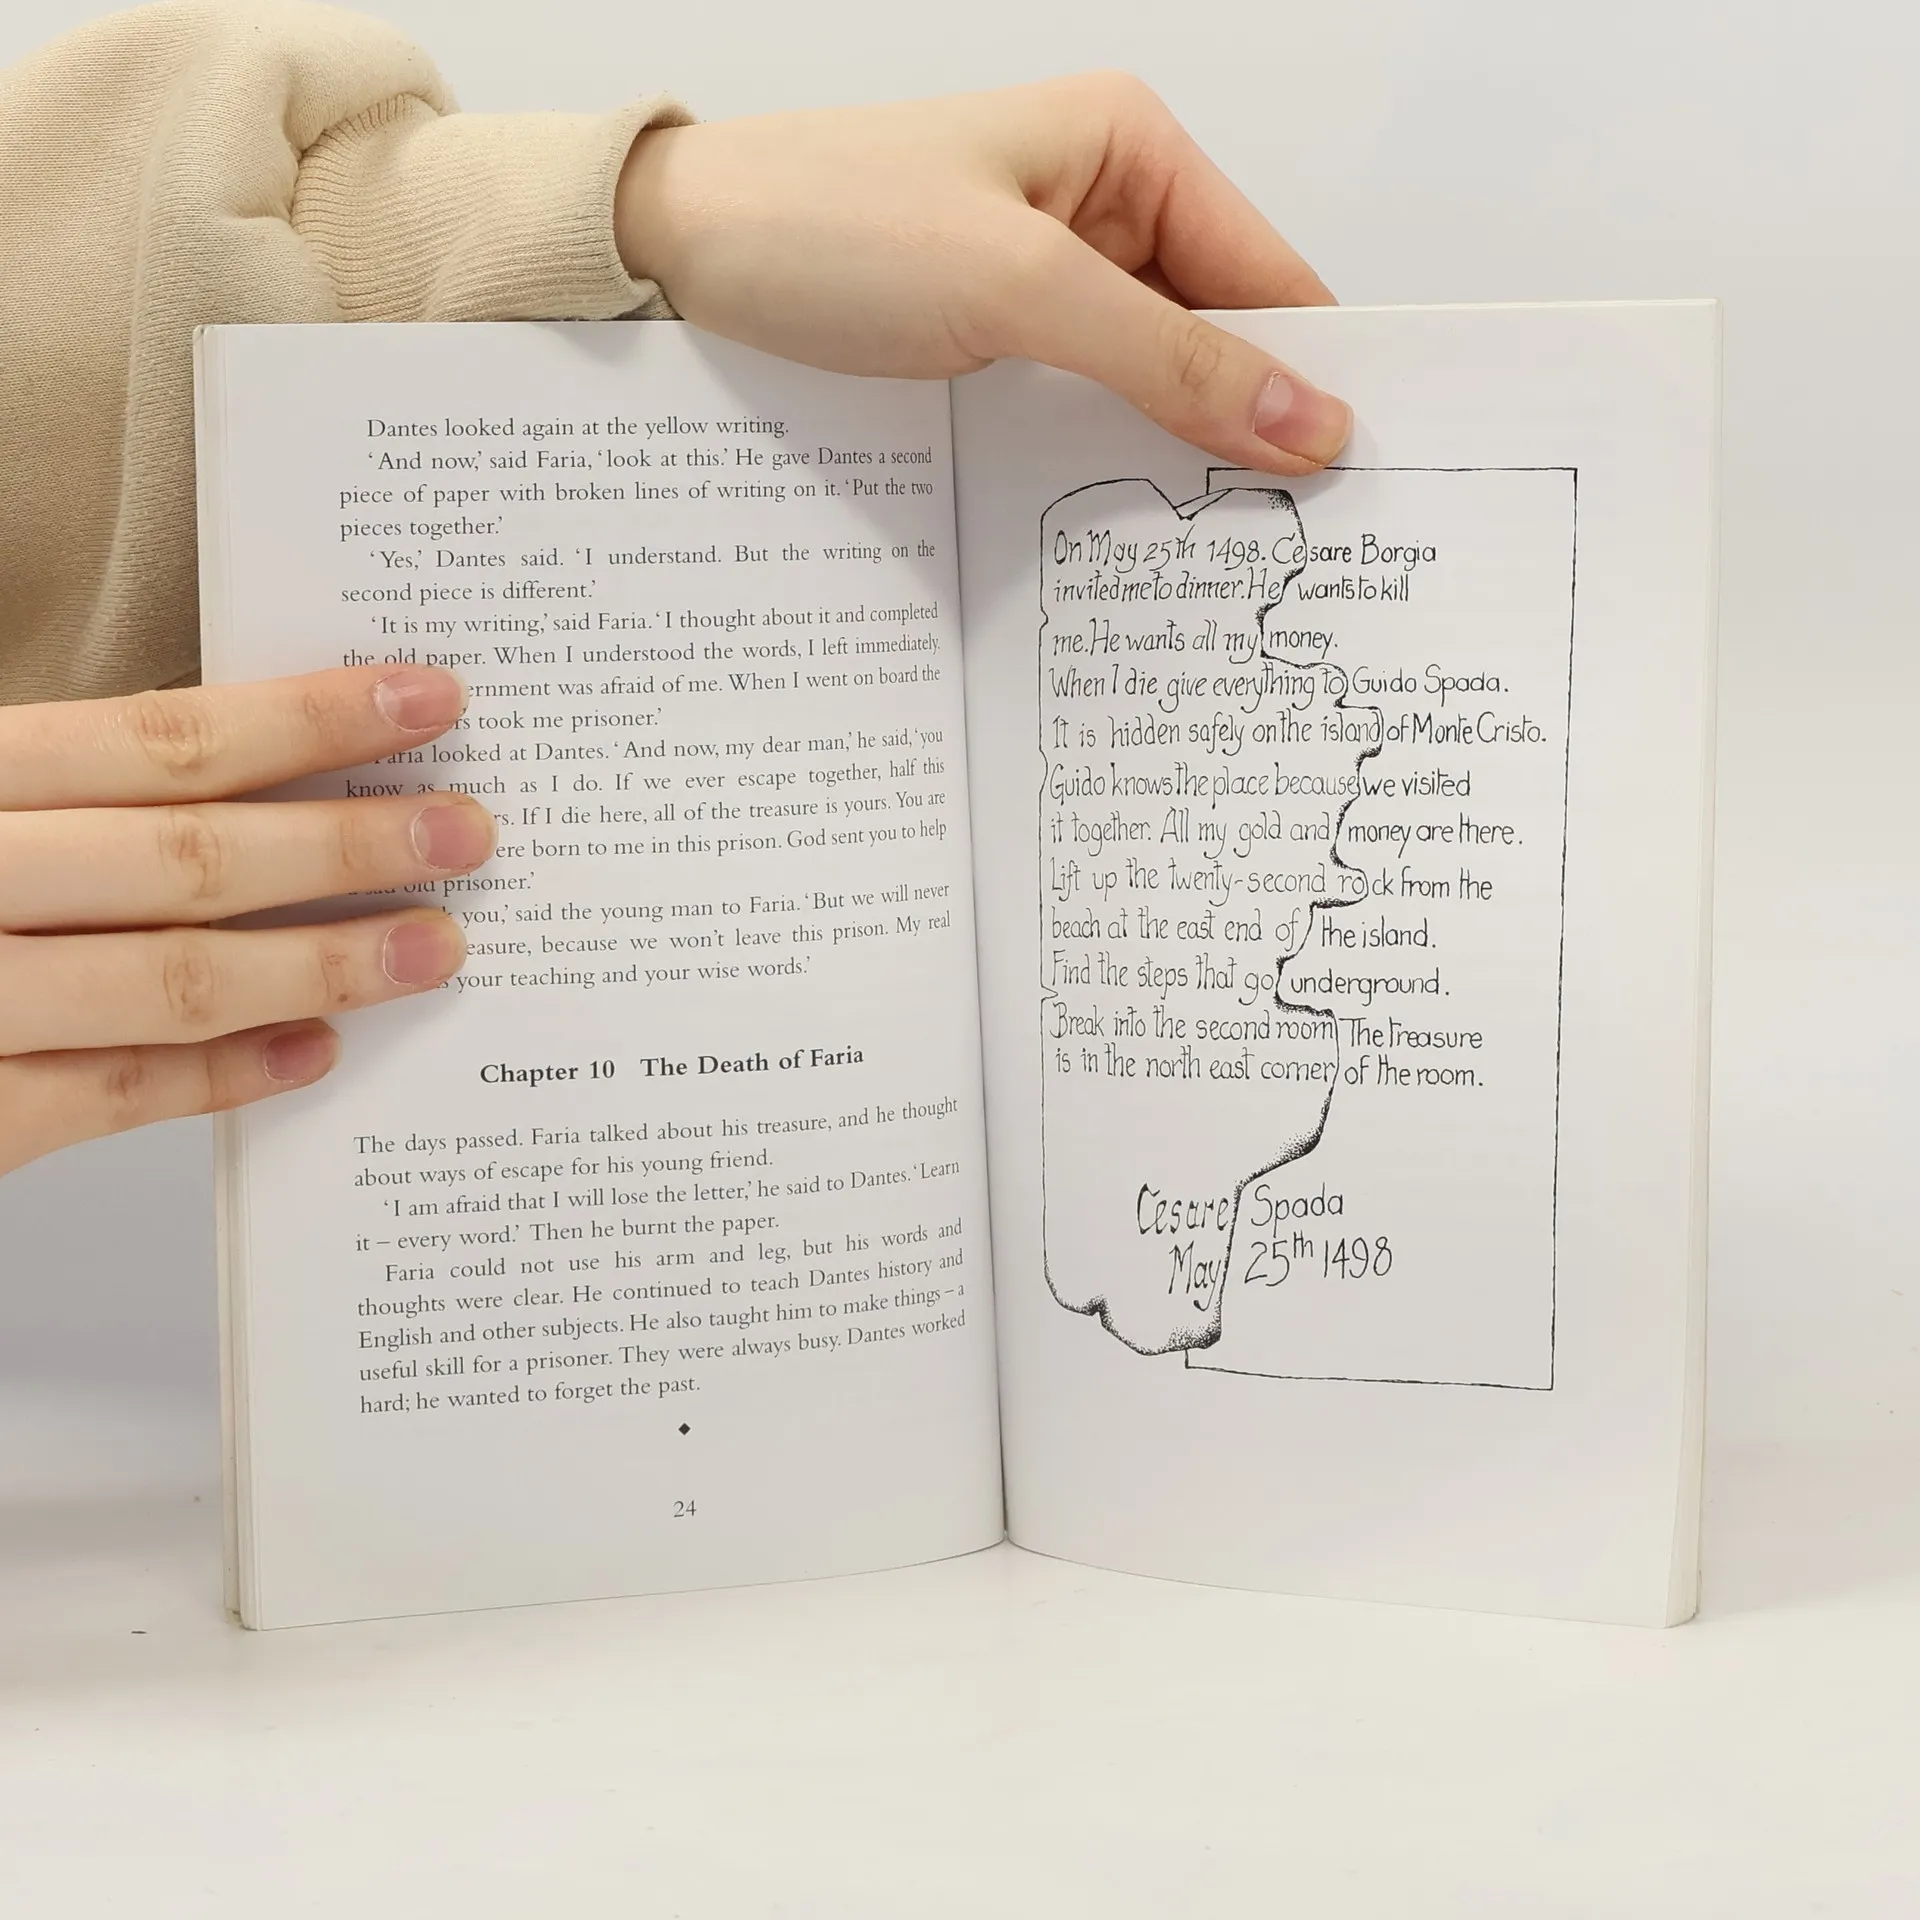 Dantes looked again at the yellow writing.
‘And now,’ said Faria, ‘look at this.’ He gave Dantes a second
piece of paper with broken lines of writing on it. ‘Put the two
pieces together.’
‘Yes,’ Dantes said. ‘I understand. But the writing on the
second piece is different.’
‘It is my writing,’ said Faria. ‘I thought about it and completed
the old paper. When I understood the words, I left immediately.
was afraid of me. When I went on board the
took me prisoner.’
looked at Dantes. ‘And now, my dear man,’ he said, ‘you
know as much as I do. If we ever escape together, half this
If I die here, all of the treasure is yours. You are
born to me in this prison. God sent you to help
old prisoner.’
you,’ said the young man to Faria. ‘But we will never
because we won’t leave this prison. My real
your teaching and your wise words.’
Chapter 10 The Death of Faria
The days passed. Faria talked about his treasure, and he thought
about ways of escape for his young friend.
‘I am afraid that I will lose the letter,’ he said to Dantes. ‘Learn
it – every word.’ Then he burnt the paper.
Faria could not use his arm and leg, but his words and
thoughts were clear. He continued to teach Dantes history and
English and other subjects. He also taught him to make things – a
useful skill for a prisoner. They were always busy. Dantes worked
hard; he wanted to forget the past.
24
On May 25th 1498. Cesare Borgia
invited me to dinner. He wants to kill
me. He wants all my money.
When I die give everything to Guido Spada.
It is hidden safely on the island of Monte Cristo.
Guido knows the place because we visited
it together. All my gold and money are there.
Lift up the twenty-second rock from the
beach at the east end of the island.
Find the steps that go underground.
Break into the second room The treasure
is in the north east corner of the room.
Cesare Spada
May 25th 1498